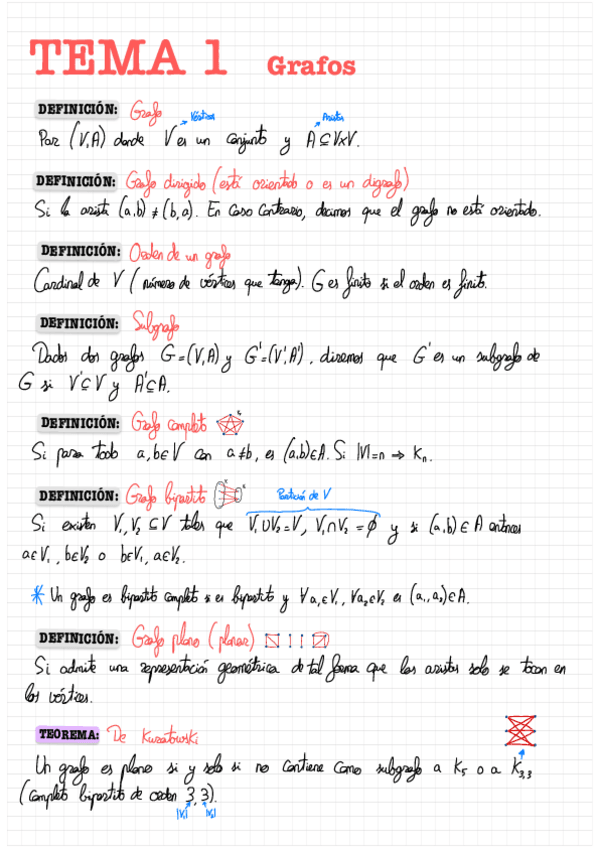 TEMA 1 Grafos
DEFINICIÓN: Grafo
Vértices Aristas
Par (V,A) donde V es un conjunto y A⊆VxV.
DEFINICIÓN: Grafo dirigido (está orientado o es un digrafo)
Si la arista (a,b) ≠ (b,a). En caso contrario, decimos que el grafo no está orientado.
DEFINICIÓN: Orden de un grafo
Cardinal de V (número de vértices que tenga). G es finito si el orden es finito.
DEFINICIÓN: Subgrafo
Dados dos grafos G=(V,A) y G'=(V',A'), diremos que G' es un subgrafo de
G si V'⊆V y A'⊆A.
DEFINICIÓN: Grafo completo
Si para todo a,b∈V con a≠b, es (a,b)∈A. Si |V|=n ⇒ Kn.
DEFINICIÓN: Grafo bipartito Partición de V
Si existen V₁,V₂ ⊆V tales que V₁∪V₂=V, V₁∩V₂ = ∅ y si (a,b)∈A entonces
a∈V₁, b∈V₂ o b∈V₁, a∈V₂.
* Un grafo es bipartito completo si es bipartito y ∀a₁∈V₁, ∀a₂∈V₂ es (a₁,a₂)∈A.
DEFINICIÓN: Grafo plano (planar)
Si admite una representación geométrica de tal forma que las aristas solo se tocan en
los vértices.
TEOREMA: De Kuratowski
Un grafo es plano si y solo si no contiene como subgrafo a K₅ o a K₃,₃
(completo bipartito de orden 3,3).
|V₁| |V₂|